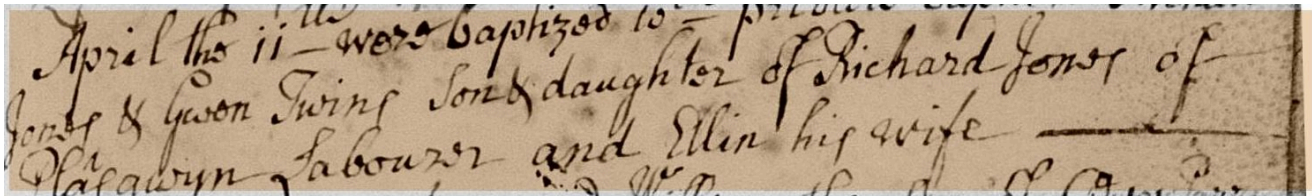 April the 11th were baptized with private baptism
Jones & Gwen Twins Son & daughter of Richard Jones of
Plasgwyn Labourer and Ellin his wife